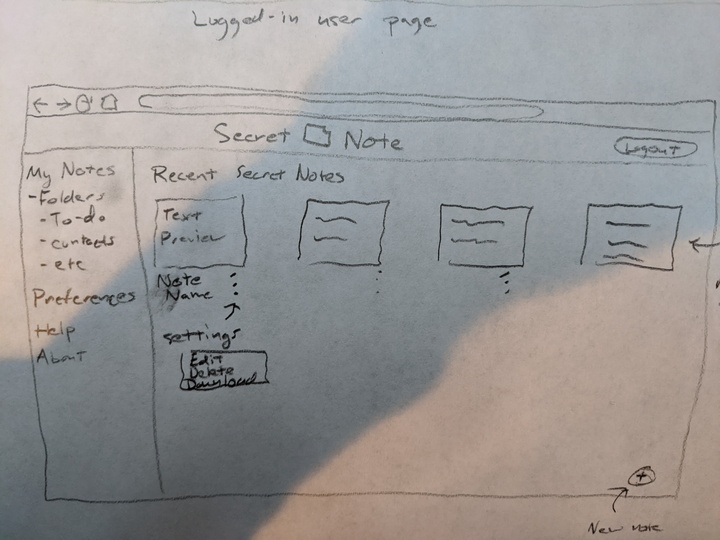 Logged-in user page
Secret Note
Logout
My Notes
-Folders
-To-do
-contacts
-etc
Preferences
Help
About
Recent Secret Notes
Text
Preview
Note
Name
settings
Edit
Delete
Download
+
New note